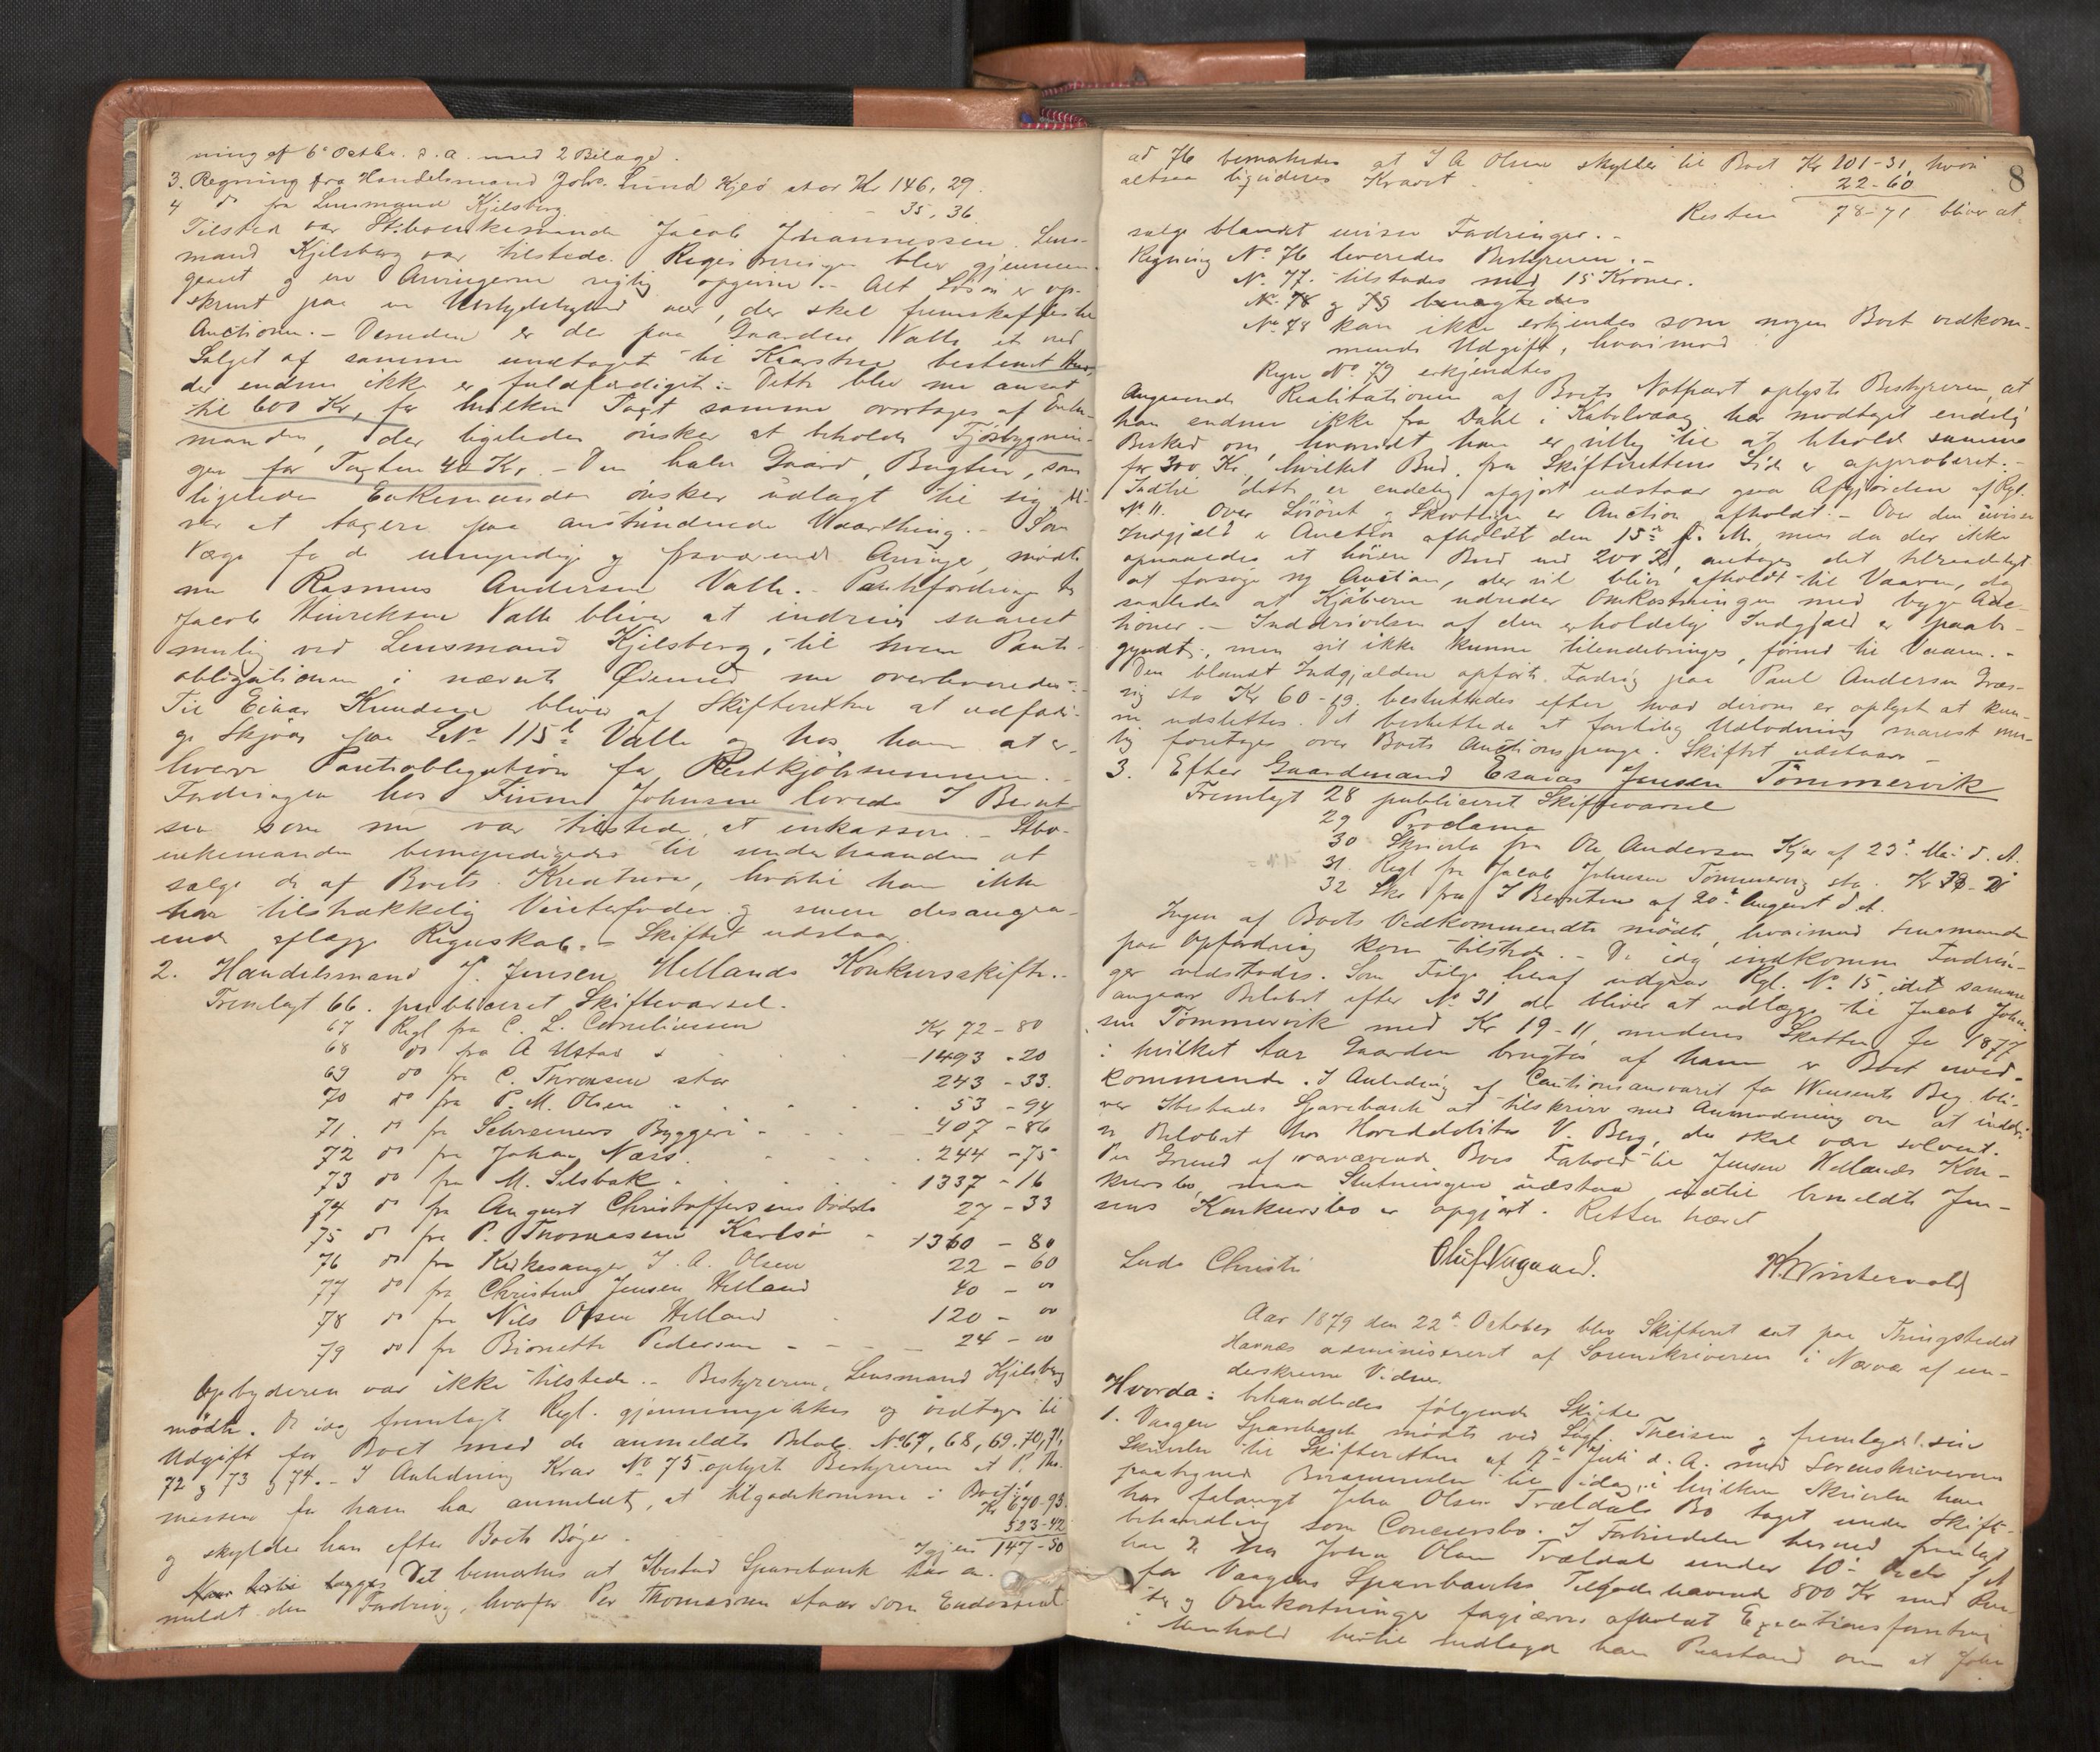 ning af 6e Octbr. d. a. med 2 Bilage.
3. Regning fra Handelsmand Johs. Lund Kjeö stor Kr 146, 29.
4 do fra Lensmand Kjelsberg - 35, 36
Tilstede var Stboenkemanden Jacob Johannessen. Lens-
mand Kjelsberg var tilstede. Registreringen blev gjennem-
gaaet og er Arvingerne rigtig opgivne. - Alt Lösöre er op-
skrevet paa en der skal fremskaffes til
Auctionen. - Desuden er der paa Gaarden Valle et ved
Salget af samme undtaget til Kaarstue bestemt Hus,
der endnu ikke er fuldfærdiget. - Dette blev nu ansat
til 600 Kr, for hvilken Taxt samme overtages af Enke-
manden, der ligeledes önsker at beholde Fjösbygnin-
gen for Taxten 40 Kr. - Den halve Gaard, Bugten, som
ligeledes Enkemanden önsker udlagt til sig bli-
ver at taxere paa anstundende Vaarthing. - Som
Værge for de umyndige og fraværende Arvinger mödte
nu Rasmus Andersen Valle. - Pantefordringen hos
Jacob Hinriksen Valle bliver at inddrive snarest
mulig ved Lensmand Kjelsberg, til hvem Pante-
obligationen i nævnte Øiemed nu overleveredes. -
Til Einar Knudsen bliver af Skifteretten at udfærdi-
ge Skjöde paa LNo 115b Valle og hos ham at er-
hverve Panteobligation for Restkjöbesummen. -
Fordringen hos Finne Johnsen lovede I Bernt-
sen som nu var tilstede, at inkassere. - Stbo-
enkemanden bemyndigedes til underhaanden at
sælge de af Boets Kreature, hvortil han ikke
har tilstrækkelig Vinterfoder og senere desangaa-
ende aflægge Regnskab. - Skiftet udstaar.
2. Handelsmand J. Jensen Hellands Konkursskifte. -
Fremlagt 66. publiceret Skiftevarsel.
67 Regl fra C. L. Corneliussen Kr 72 - 80
68 do fra A Ustad - 1493 - 20
69 do fra C. Thronsen stor 243 - 33.
70 do fra P. M. Olsen 53 - 94
71. do fra Schreiners Byggeri 407 - 86
72 do fra Johan Næss 244 - 75
73 do fra M. Selsbak 1337 - 16
74 do fra August Christoffersens Dödsbo 27 - 33
75 do fra P. Thomasen Karlsö - 1360 - 80
76 do fra Kirkesanger I. A. Olsen 22 - 60
77 do fra Christen Jensen Helland 40 - 00
78 do fra Nils Olsen Helland 120 - 00
79 do fra Pedersen 24 - 00
Opbyderen var ikke tilstede. - Bestyreren, Lensmand Kjelsberg
mödte. De idag fremlagte Regl. gjennemgikkes og vedtages til
Udgift for Boet med de anmeldte Beløb No 67, 68, 69. 70, 71,
72 og 73 & 74. - I Anledning Krav No 75 oplyste Bestyreren at P. Tho-
massen for ham har anmeldt, at tilgodekomme i Boet: Kr 670-93
og skylder han efter Boets Bøger 523-42
Igjen 147-50
Det bemærkes at Ibestad Sparebank har an-
meldt den Fordring, hvorfor Per Thomassen staar som Endossent
8
ad 76 bemærkedes at I A Olsen skylder til Boet Kr 101-31, hvori
altsaa ligvideres Kravet 22-60
Resten 78-71 bliver at
sælge blandt uvisse Fordringer. -
Regning No 76 leveredes Bestyreren. -
No 77. tilstodes med 15 Kroner.
No 78 & 79 benægtedes
No 78 kan ikke erkjendes som nogen Boet vedkom-
mende Udgift, hvorimod
Regn No 79 erkjendtes
Angaaende Realitationen af Boets Notpart oplyste Bestyreren, at
han endnu ikke fra Dahl i Kabelvaag har modtaget endelig
Besked om, hvorvidt han er villig til at beholde samme
for 300 Kr, hvilket Bud fra Skifterettens Side er approberet. -
Indtil dette er endelig afgjort udstaar ogsaa Afgjörelsen af Rgl.
No 11. Over Lösöret & Skortlig er Auction afholdt. - Over den uvisse
Indgjæld er Auction afholdt den 15de d. M., men da der ikke
opnaaedes et höiere Bud end 200 Kr, antages det tilraadeligt
at forsøge ny Auction, der vil blive afholdt til Vaaren, dog
saaledes at Kjøberen udreder Omkostningen med begge Auc-
tioner. - Inddrivelsen af den erholdelige Indgjæld er paabe-
gyndt, men vil ikke kunne tilendebringes, förend til Vaaren. -
Den blandt Indgjælden opførte Fordring paa Paul Andersen Græs-
vig stor Kr 60-19 besluttedes efter hvad derom er oplyst at kun-
ne udslettes. Det besluttedes at foretages Udlodning snarest mu-
lig foretages over Boets Auctionspenge. Skiftet udstaar. -
3. Efter Gaardmand Esaias Jensen Tömmervik
Fremlagt 28 publiceret Skiftevarsel
29 Proclama
30 Skrivelse fra Ole Andersen Kjær af 23de Mai d. A.
31. Regl fra Jacob Johnsen Tömmervig stor Kr
32 Skr fra I Berntsen af 20de August d. A.
Ingen af Boets Vedkommende mödte, hvorimod Lensmanden
paa Opfordring kom tilstede. - De idag indkomne Fordrin-
ger vedstodes. Som Følge heraf udgaar Rgl. No 15, idet samme
angaar Beløbet efter No 31 der bliver at udlægge til Jacob John-
sen Tömmervik med Kr 19-11, medens Skatten for 1877
i hvilket Aar Gaarden brugtes af ham er Boet uved-
kommende. I Anledning af Cautionsansvaret for Wensents Berg bli-
ver Ibestads Sparebank at tilskrive med Anmodning om at inddri-
ve Beløbet hos Hoveddebitor V. Berg, der skal være solvent.
Paa Grund af nærværende Boes Forhold til Jensen Hellands Kon-
kursbo, maa Slutningen udstaa indtil bemeldte Jen-
sens Konkursbo er opgjort. Retten hævet
Ludv Christie Oluf Nygaard. H. Wintervold
Aar 1879 den 22de October blev Skifteret sat paa Thingstedet
Havnæs administreret af Sorenskriveren i Nærvær af un-
derskrevne Vidner.
Hvorda: behandledes følgende Skifter
1. Vaagens Sparebank mödte ved Sagf. Theisen & fremlagde 1. sin
Skrivelse til Skifteretten af 12te Juli d. A. med Sorenskriverens
paategnede Berammelse til idag, i hvilken Skrivelse han
har forlangt John Olsen Trældals Bo taget under Skift-
behandling som Concursbo. I Forbindelse hermed fremlagde
han 2. hos John Olsen Trældal under 10de d A
for Vaagens Sparebanks Tilgodehavende 800 Kr med Ren-
ter og Omkostninger forgjæves afholdt Executionsforretning
i Henhold hertil nedlagde han Paastand om at John